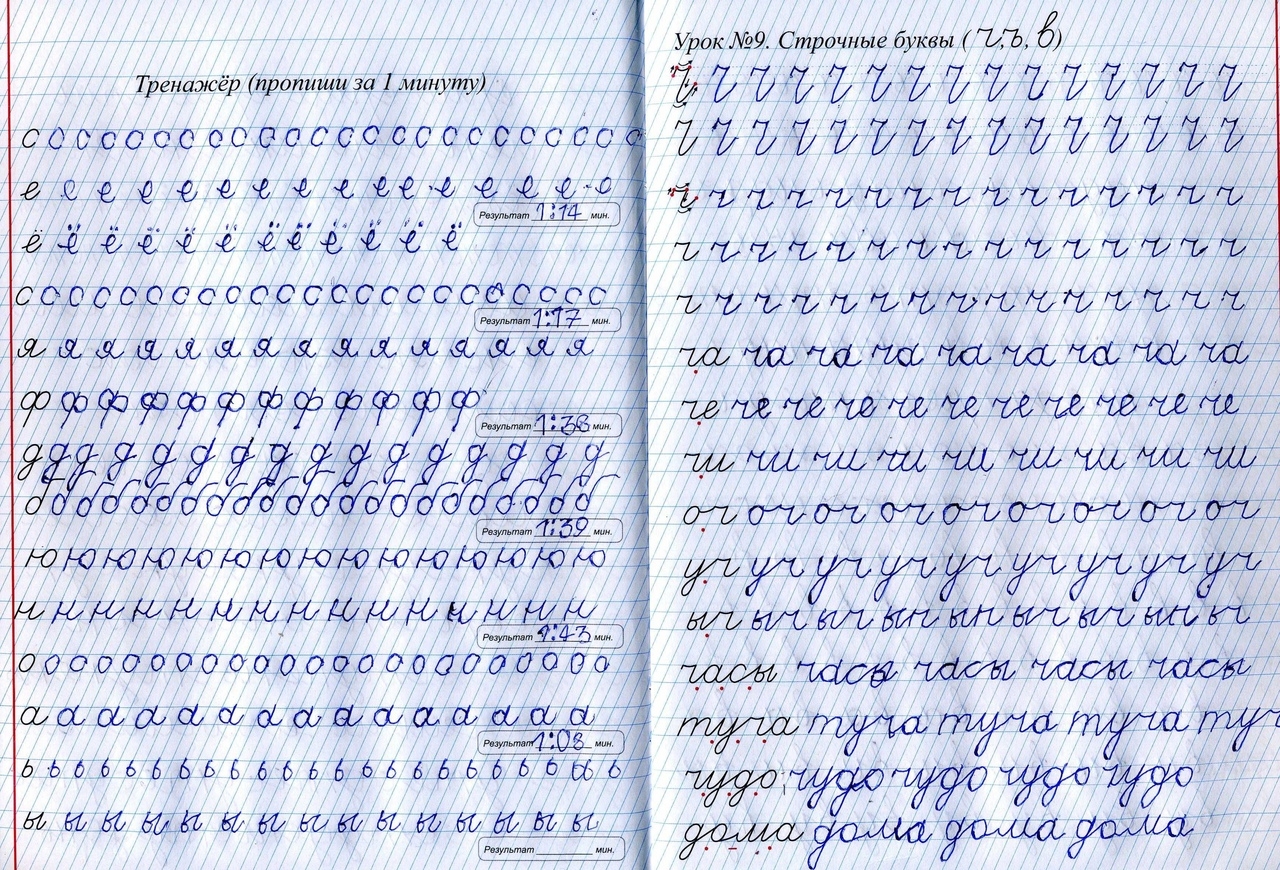 Тренажёр (пропиши за 1 минуту)
с с с с с с с с с с с с с с с с с с с с с с с с
е е е е е е е е е е е е е е е е
Результат 1:14 мин.
ё ё ё ё ё ё ё ё ё ё ё ё
с с с с с с с с с с с с с с с с с с с с с с с
Результат 1:17 мин.
я я я я я я я я я я я я я я я
ф ф ф ф ф ф ф ф ф ф ф ф
Результат 1:38 мин.
д д д д д д д д д д д д д д д д
б б б б б б б б б б б б б б б б б б б б б б
Результат 1:39 мин.
ю ю ю ю ю ю ю ю ю ю ю ю ю ю ю
н н н н н н н н н н н н н н н
Результат 1:43 мин.
о о о о о о о о о о о о о о о о о о о о о о о
а а а а а а а а а а а а а а а
Результат 1:08 мин.
ь ь ь ь ь ь ь ь ь ь ь ь ь ь ь ь ь ь ь ь ь ь ь
ы ы ы ы ы ы ы ы ы ы ы ы ы ы ы
Результат ______ мин.
Урок №9. Строчные буквы ( ч, ъ, в)
ч ч ч ч ч ч ч ч ч ч ч ч ч ч ч
ч ч ч ч ч ч ч ч ч ч ч ч ч ч ч
ч ч ч ч ч ч ч ч ч ч ч ч ч ч ч
ч ч ч ч ч ч ч ч ч ч ч ч ч ч ч
ч ч ч ч ч ч ч ч ч ч ч ч ч ч ч
ча ча ча ча ча ча ча ча ча
че че че че че че че че че че че
чи чи чи чи чи чи чи чи чи
оч оч оч оч оч оч оч оч оч
уч уч уч уч уч уч уч уч уч
ыч ыч ыч ын ын ыч ыч ын ыч
часы часы часы часы часы
туча туча туча туча туч
чудо чудо чудо чудо чудо
дома дома дома дома